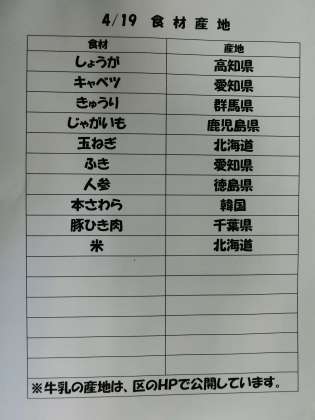 4/19 食材産地
食材 産地
しょうが 高知県
キャベツ 愛知県
きゅうり 群馬県
じゃがいも 鹿児島県
玉ねぎ 北海道
ふき 愛知県
人参 徳島県
本さわら 韓国
豚ひき肉 千葉県
米 北海道
※牛乳の産地は、区のHPで公開しています。